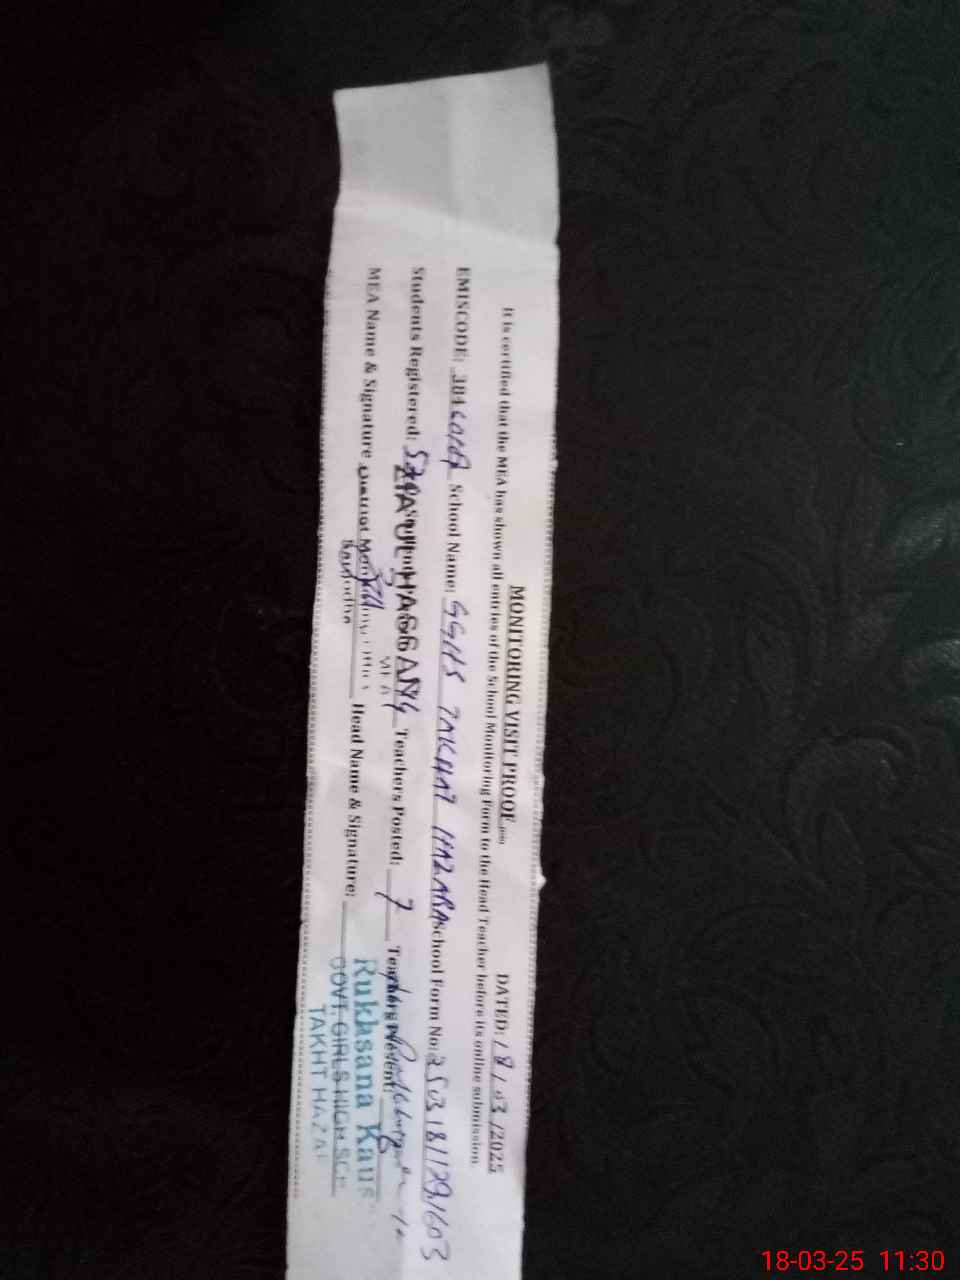 MONITORING VISIT PROOF DATED: 18/03/2025
It is certified that the MEA has shown all entries of the School Monitoring Form to the Head Teacher before its online submission.
EMISCODE: School Name: GGHS TAKHAT HAZARA School Form No: 2503181129,1603
Students Registered: Teachers Posted: 7 Teachers Present: 6
ZIA UL HASSAN
MEA
MEA Name & Signature Head Name & Signature:
District
Sargodha
Rukhsana
GOVT. GIRLS HIGH
TAKHT HAZA
18-03-25 11:30